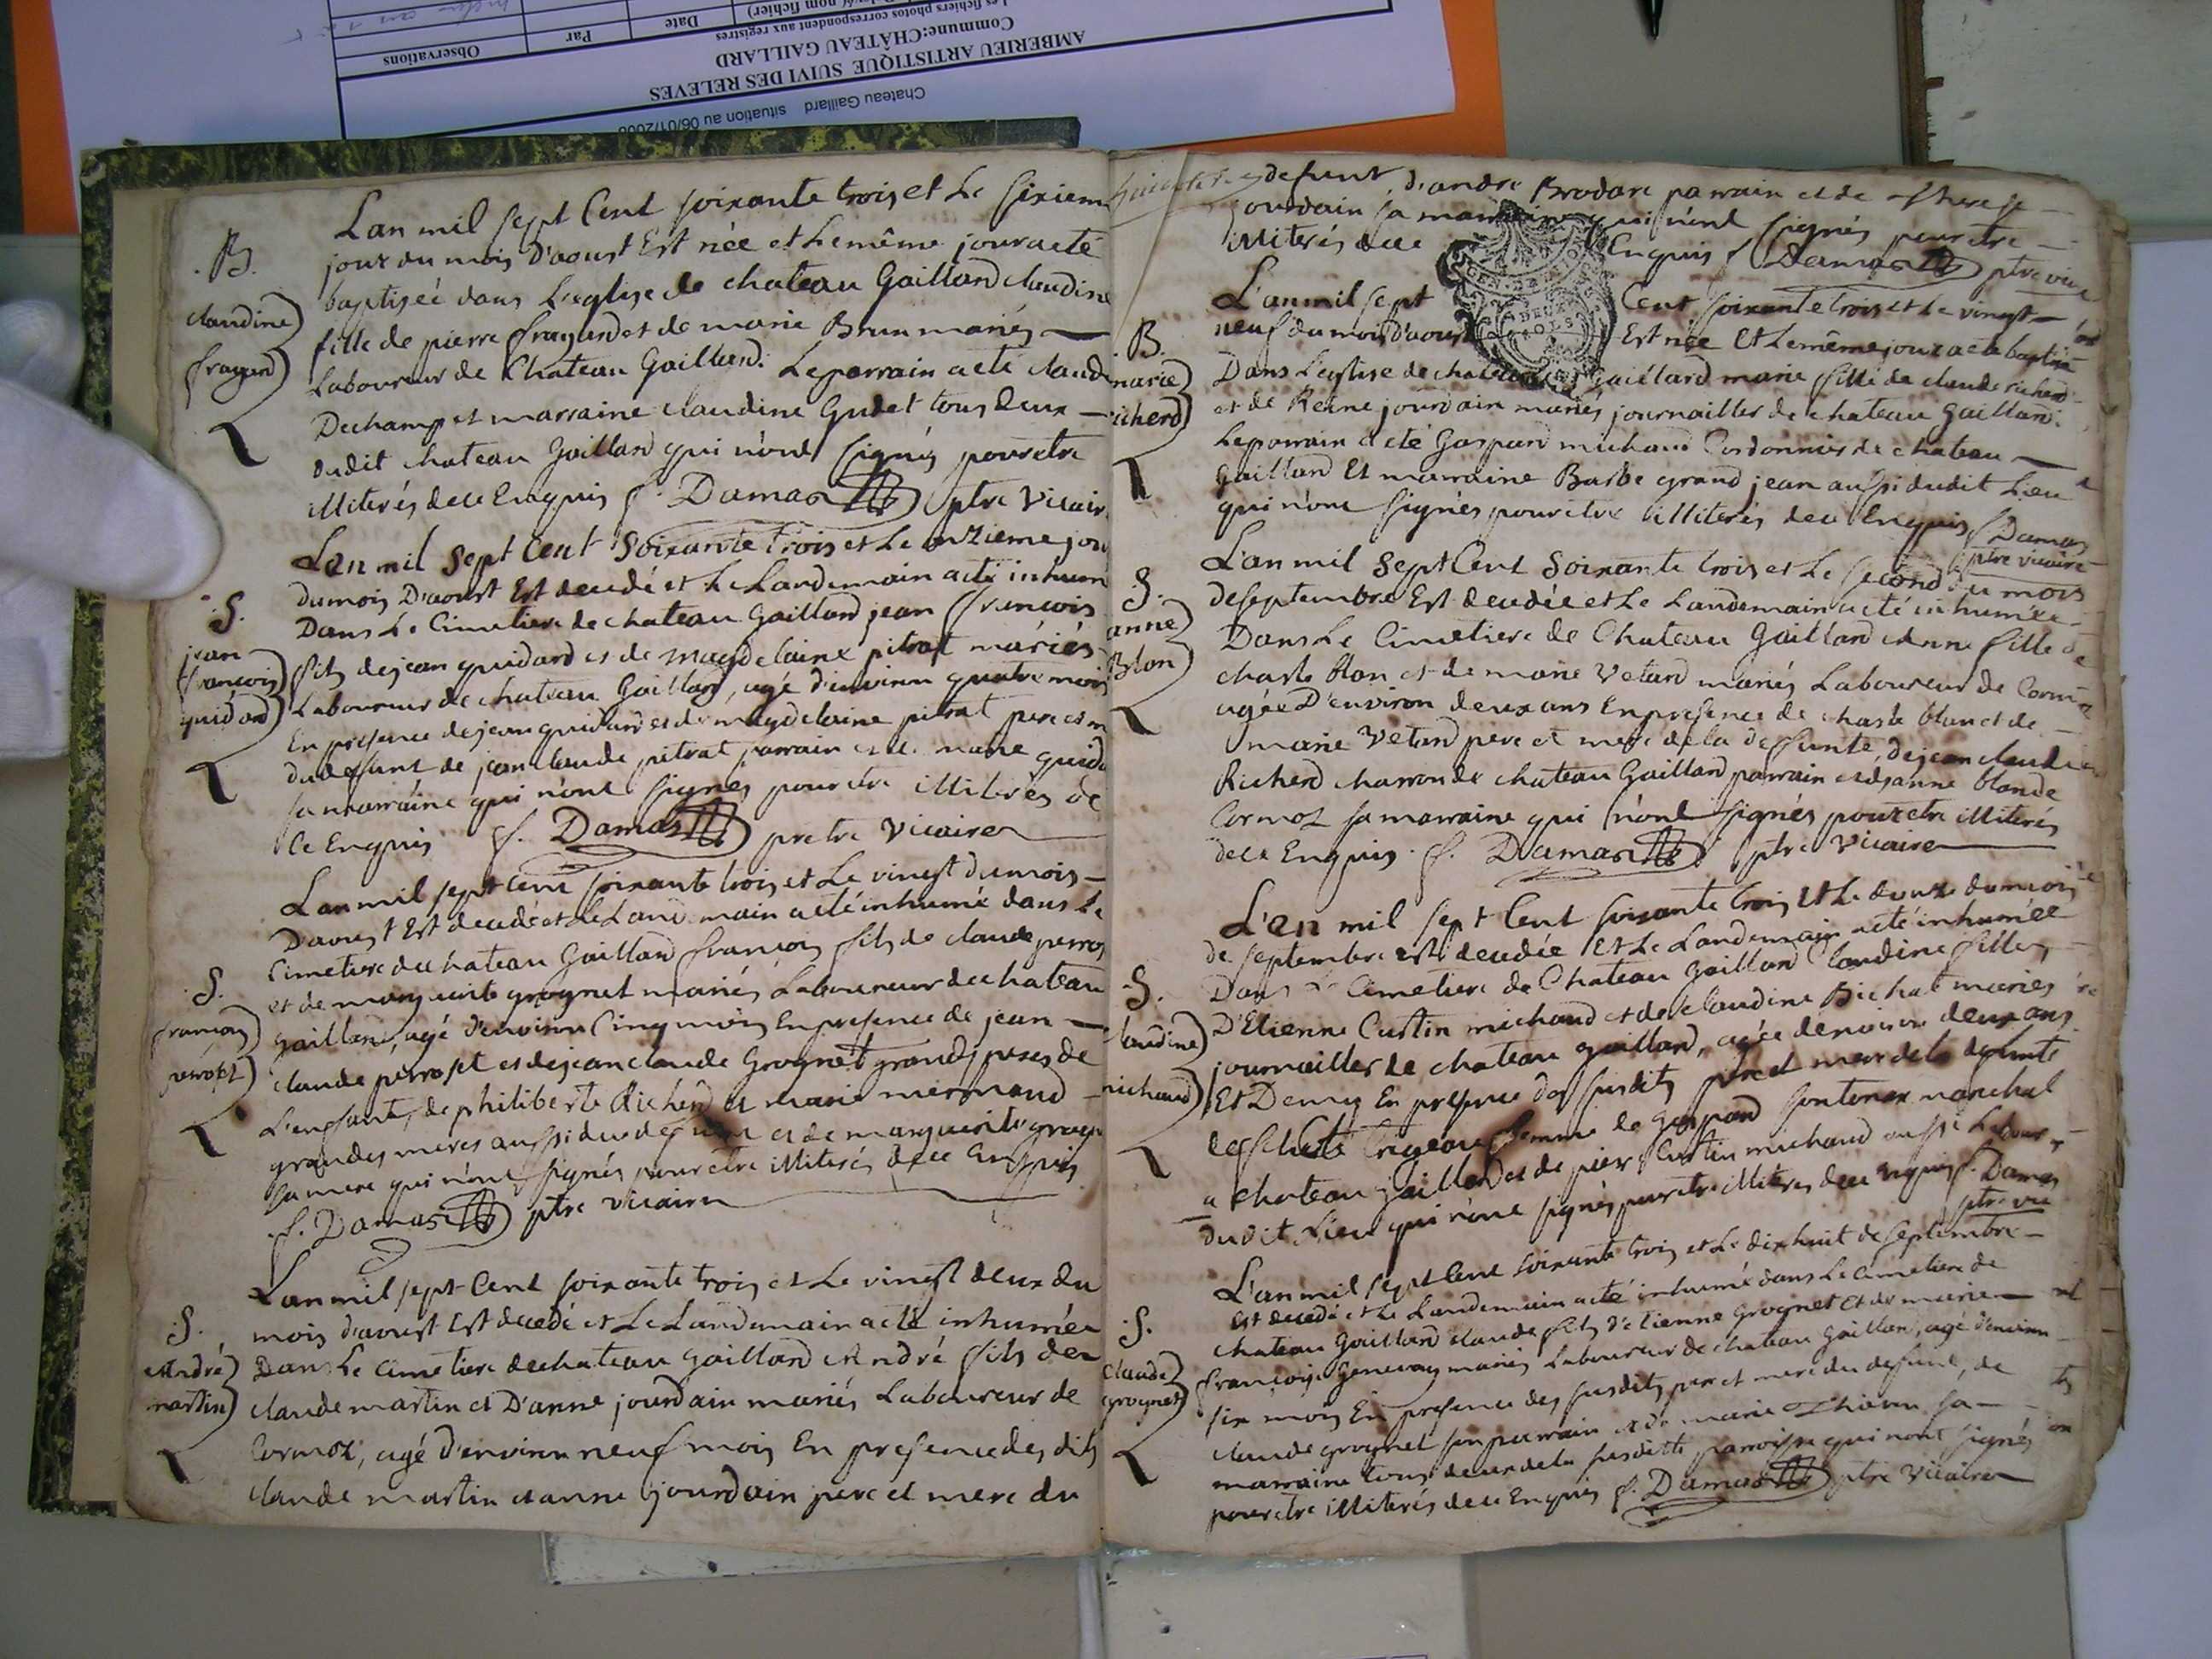 Chateau Gaillard situation au 06/01/200
AMBERIEU ARTISTIQUE SUIVI DES RELEVES
Commune:CHÂTEAU GAILLARD
Les fichiers photos correspondent aux registres
nom fichier)
Date
Par
Observations
B.
claudine
frayard
Lan mil sept Cent soixante trois et Le sixiem
jour du mois D'aoust Est née et Le même jour a eté
baptiseé dans L'eglise de chateau Gaillard claudine
fille de pierre frayard et de marie Brun mariés
Laboureur de Chateau Gaillard. Le parrain a eté claude
Dechamp et marraine claudine Gudet tous Deux
dudit chateau Gaillard qui n'ont signés pour etre
illiterés de ce Enquis f. Damas ptre Vicair
S.
jean
francois
guidard
Lan mil sept Cent soixante trois et Le onzieme jou
du mois D'aoust Est decedé et Le Landemain a eté inhumé
Dans Le Cimetiere de chateau Gaillard jean francois
fils de jean guidard et de magdelaine pitrat mariés
Laboureur de chateau Gaillard, agé d'environ quatre mois
En presence de jean guidard et de magdelaine pitrat pere et m
du defunt de jean claude pitrat parrain et de marie guida
sa marraine qui n'ont signés pour etre illiterés de
Ce Enquis f. Damas pretre Vicaire
S.
francois
perroset
Lan mil sept Cent soixante trois et Le vingt du mois
D'aoust Est decedé et Le Landemain a eté inhumé dans Le
Cimetiere de chateau Gaillard francois fils de claude perros
et de marguerite grognet mariés Laboureur de chateau
gaillard, agé d'environ Cinq mois En presence de jean
claude perroset et de jean claude Grognet grands peres de
L'enfant, de philiberte Richerd et marie mermand
grandes meres aussi du defunt et de marguerite grogn
sa mere qui n'ont signés pour etre illiterés de ce Enquis
f. Damas ptre vicaire
S.
André
martin
Lan mil sept Cent soixante trois et Le vingt deux du
mois d'aoust Est decedé et Le Landemain a eté inhumé
Dans Le Cimetiere de chateau Gaillard André fils de
claude martin et D'anne jourdain mariés Laboureur de
Cormoz, agé d'environ neuf mois En presence des dits
claude martin et anne jourdain pere et mere du
defunt, d'andré Brodare parrain et de therese
jourdain sa marraine qui n'ont signés pour etre
illiterés de ce Enquis f Damas ptre vice
B.
marie
richerd
L'an mil sept Cent soixante trois et Le vingt
neuf du mois D'aoust Est née Et Le même jour a eté baptisé
Dans L'eglise de chateau Gaillard marie fille de claude richerd
et de Reine jourdain mariés journailler de chateau Gaillard.
Le parrain a eté Gaspard michaud Cordonnier de chateau
Gaillard Et marraine Barbe grand jean aussi dudit Lieu
qui n'ont signés pour etre illiterés de ce Enquis f Damas
ptre vicaire
S.
anne
Blan
L'an mil sept Cent soixante trois et Le second du mois
de septembre Est decedée et Le Landemain a eté inhumée
Dans Le Cimetiere de Chateau Gaillard Anne fille de
charle blan et de marie Vetard mariés Laboureur de Cormo
agée D'environ deux ans En presence de charle blan et de
marie Vetard pere et mere de la deffunte, de jean claude
Richerd charron de chateau Gaillard parrain et de anne blan de
Cormoz sa marraine qui n'ont signés pour etre illiterés
de ce Enquis. f. Damas ptre Vicaire
S.
claudine
michaud
L'an mil sept Cent soixante trois Et Le douze du mois
de septembre est decedée Et Le Landemain a eté inhumée
Dans Le Cimetiere de Chateau Gaillard Claudine fille
D'Etienne Custin michaud et de Claudine Bichat mariés
journailler de chateau gaillard, agée denviron deux ans
Et Demy En presence des susdits pere et mere de la defunte
femme de Gaspard marechal
a chateau gaillard et de pierre Custin michaud aussi Labour
du dit Lieu qui n'ont signés pour etre illiterés de ce Enquis f. Damas
ptre vic
S.
Claude
grognet
L'an mil sept Cent soixante trois et Le dix huit de septembre
Est decedé et Le Landemain a eté inhumé dans Le Cimetiere de
chateau Gaillard claude fils d'Etienne Grognet Et de marie
françoise Genevay mariés Laboureur de chateau Gaillard, agé d'environ
six mois En presence des susdits pere et mere du defunt, de
claude grognet son parrain et de marie sa
marraine tous deux de la susditte parroisse qui n'ont signés
pour etre illiterés de ce Enquis f. Damas ptre Vicaire